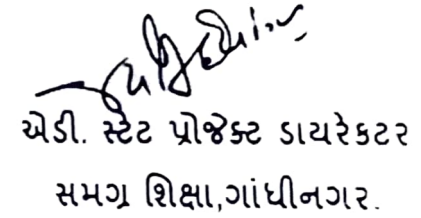 એડી. સ્ટેટ પ્રોજેક્ટ ડાયરેક્ટર
સમગ્ર શિક્ષા,ગાંધીનગર.